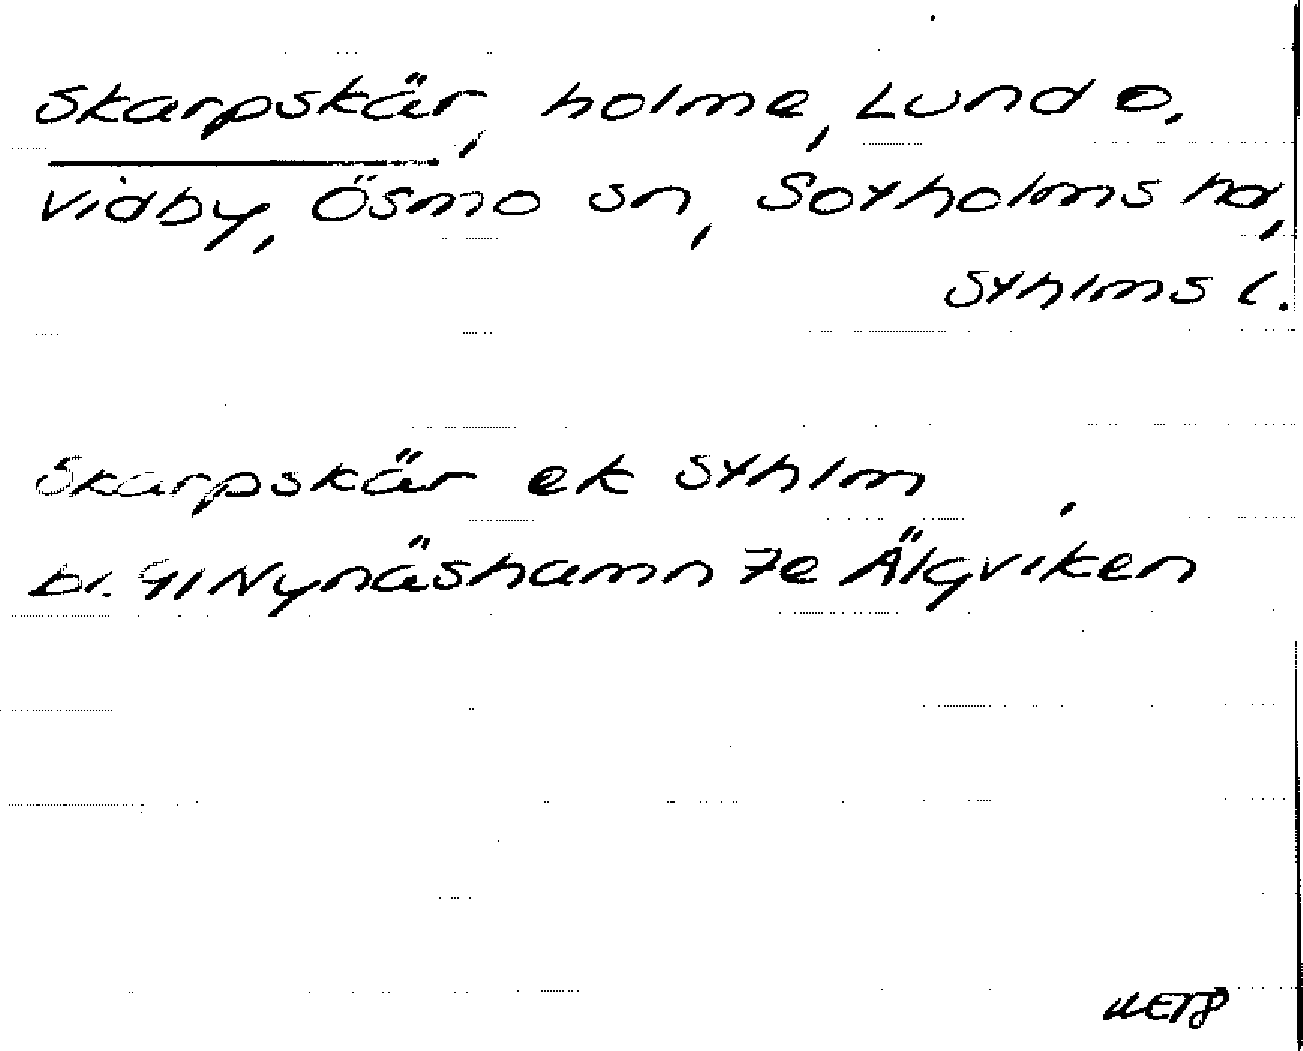 Skarpskär, holme, Lund o.
Vidby, Ösmo sn, Sotholms hd,
Sthlms l.
Skarpskär ek Sthlm,
bl. 91 Nynäshamn 7e Älgviken